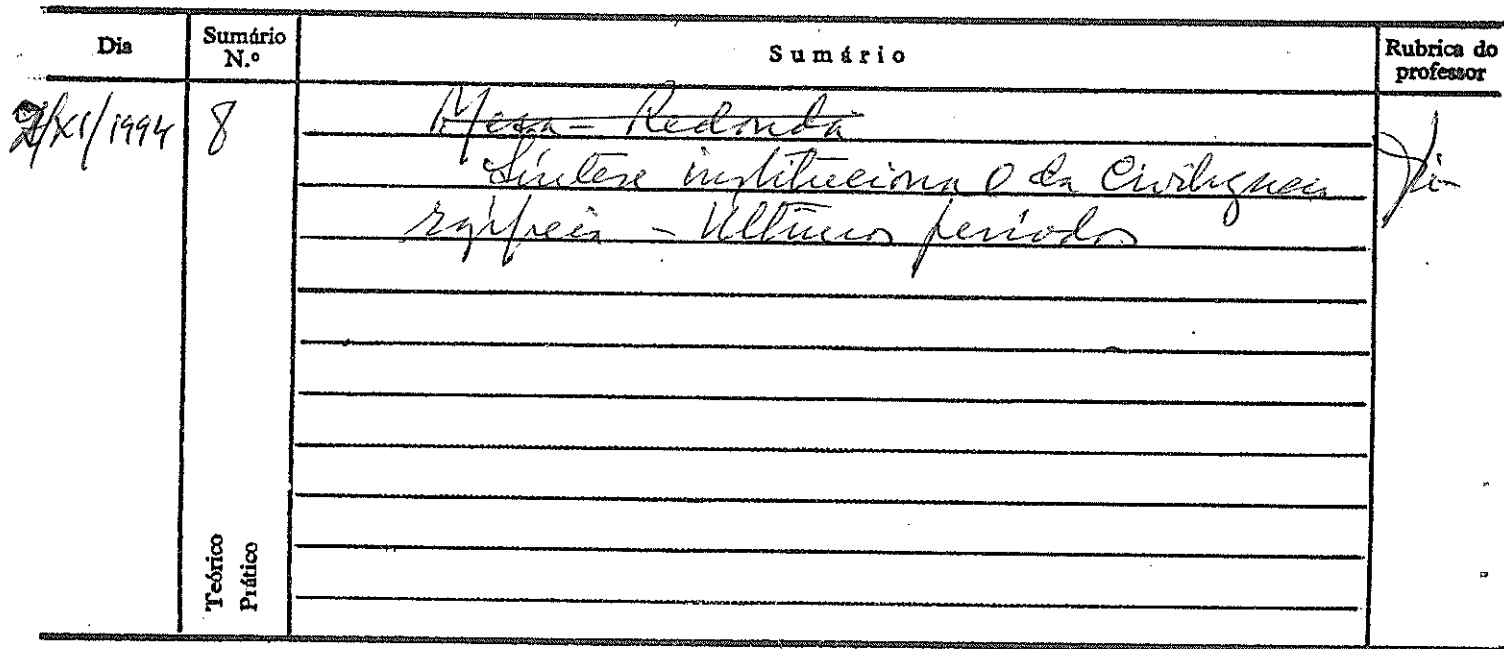 Dia Sumário N.º Sumário Rubrica do professor
/XI/1994 8 Mesa-Redonda
Síntese institucional da Civilização
egípcia - Últimos períodos
Teórico
Prático